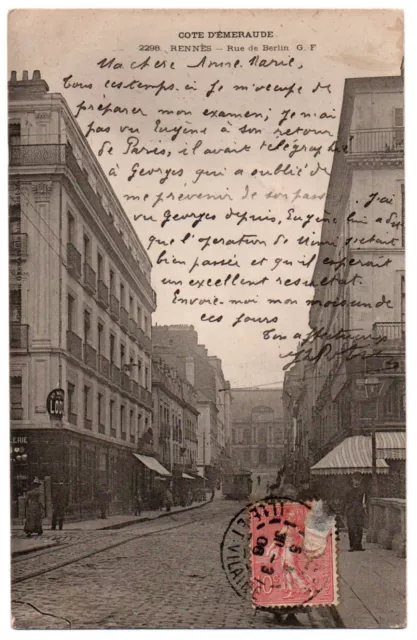 COTE D'ÉMERAUDE
2298. RENNES — Rue de Berlin G. F
Ma chère Anne-Marie,
Tous ces temps-ci je m'occupe de
préparer mon examen; je n'ai
pas vu Eugène à son retour
de Paris, il avait télégraphié
à Georges qui a oublié de
me prévenir de son passage. J'ai
vu Georges depuis, Eugène lui a dit
que l'opération de s'était
bien passée et qu'il espérait
un excellent résultat.
Envoie-moi mon
ces jours
Ton affectueux
LOC
ERIE
ILLE ET VILAINE
5
30-3
06
10